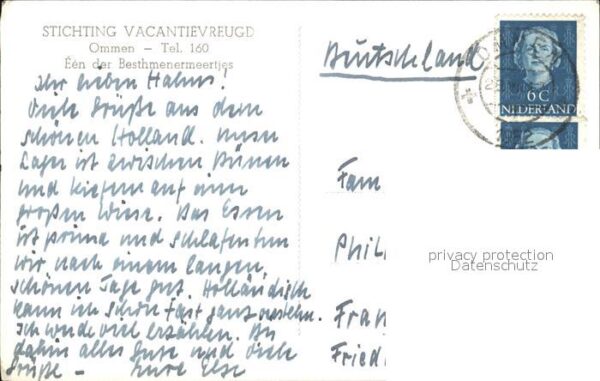 STICHTING VACANTIEVREUGD
Ommen – Tel. 160
Eén der Besthmenermeertjes
Ihr lieben Hahns!
Viele Grüße aus dem
schönen Holland. Unser
Lager ist zwischen Dünen
und Kiefern auf einer
großen Wiese. Das Essen
ist prima und schlafen tun
wir nach einem langen,
schönen Tage gut. Holländisch
kann ich schon fast ganz verstehn.
Ich werde viel erzählen. Bis
dahin alles Gute und viele
Grüße – Eure Else
Deutschland
6 C
NEDERLAND
Fam
Phil
Fran
Fried
privacy protection
Datenschutz